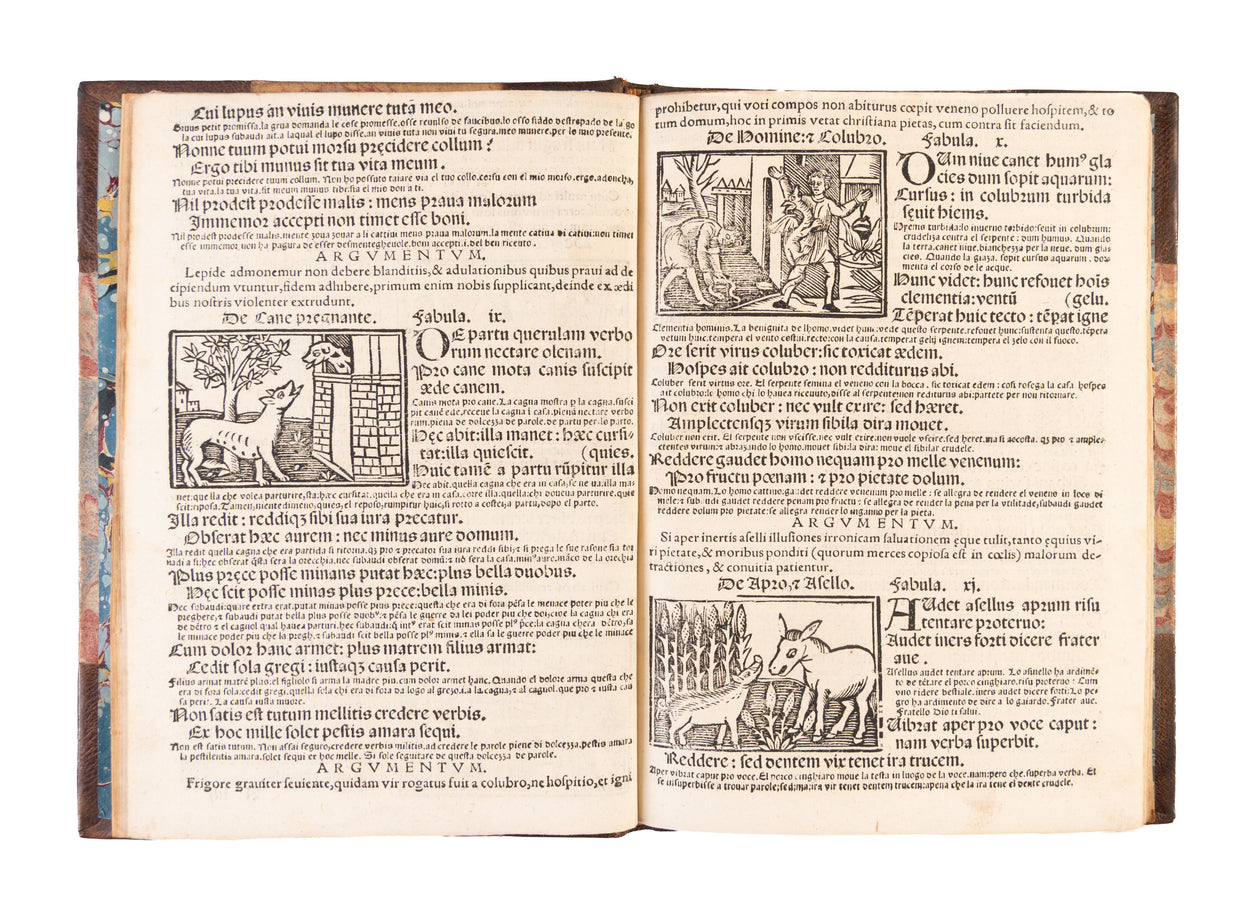 Cui lupus an viuis munere tuta meo.
Gruus petit promissa.la grua domanda le cose promesse.osse reuulso de faucibus.lo osso stado destrepado de la go
la cui lupus subaudi ait.a laqual el lupo disse.an viuis tuta non viui tu segura.meo munere.per lo mio presente.
Nonne tuum potui morsu pręcidere collum?
Ergo tibi munus sit tua vita meum.
Nonne potui precidere tuum collum. Non ho possuto taiare via el tuo collo.corsu con el mio morso.ergo.adoncha,
tua vita.la tua vita.sit meum munus tibi.sia el mio don a ti.
Nil prodest prodesse malis: mens praua malorum
Immemor accepti non timet esse boni.
Nil prodest prodesse malis.niente zoua zouar a li cattiui mens praua malorum.la mente catiua di catiui:non timet
esse immemor.non ha pagura de esser desmenteghеuole.boni accepti.i.del ben riceuto.
ARGVMENTVM.
Lepide admonemur non debere blanditiis,& adulationibus quibus praui ad de
cipiendum vtuntur,fidem adhibere,primum enim nobis supplicant,deinde ex ædi
bus nostris violenter extrudunt.
De Cane pręgnante. Fabula. ix.
DE partu querulam verbo
rum nectare olenam.
Pro cane mota canis suscipit
æde canem.
Canis mota pro cane. La cagna mostra p la cagna.susci
pit canē ede.receue la cagna ī casa.piena nectare verbo
rum.piena de dolcezza de parole.de partu per lo parto.
Hęc abit:illa manet: hæc cursi-
tat:illa quiescit. (quies.
Huic tamē a partu rūpitur illa
Hec abit.quella cagna che era in casa.se ne ua.illa ma
net:quella che volea parturire.sta:hæc cursitat.quella che era in casa.corre illa:quella:chi doueua parturire.quie
scit:riposa.Tamen,nientedimeno,quies,el reposo,rumpitur huic,fi rotto a costei,a partu,dopo el parto.
Illa redit: reddiqꝫ sibi sua iura pręcatur.
Obserat hæc aurem: nec minus aure domum.
Illa redit quella cagna che era partida si ritorna.qꝫ pro ⁊ precator sua iura reddi sibi:⁊ si prega le sue rasone sia tor
nadi a si:hec obserat q̄sta sera la orecchia.nec subaudi obserat domū:⁊ nō sera la casa.minꝰaure.māco de la orecchia
Plus pręce posse minans putat hæc:plus bella duobus.
Hęc scit posse minas plus prece:bella minis.
Hec subaudi:quare extra erat.putat minas posse plus prece:questa che era di fora pēsa le menace poter piu che le
preghere,⁊ subaudi putat bella plus posse duobꝰ:⁊ pēsa le guerre da lei poder piu che doi,zioe la cagna chi era
de dētro ⁊ el cagnol qual hauea parturi.hec subaudi:q̄ intꝰ erat scit minas posse plꝰ p̄ce:la cagna chera dētro,sa
le minace poder piu che la pregh.⁊ subaudi scit bella posse plꝰ minis,⁊ ella sa le guerre poder piu che le minace
Cum dolor hanc armet: plus matrem filius armat:
Cedit sola gregi: iustaqꝫ causa perit.
Filius armat matrē plus:el figliolo si arma la madre piu.cum dolor armet hanc. Quando el dolore arma questa che
era di fora sola:cedit gregi.quella sola chi era di fora da logo al grezo.i.a la.cagna,⁊ al cagnol.que pro ⁊ iusta cau
sa perit. La causa iusta muore.
Non satis est tutum mellitis credere verbis.
Ex hoc mille solet pestis amara sequi.
Non est satis tutum. Non assai seguro,credere verbis militis.ad credere le parole piene di dolcezza,pestis amara
la pestilentia amara.solet sequi er hoc melle. Si sole seguitare de questa dolcezza de parole.
ARGVMENTVM.
Frigore grauiter seuiente,quidam vir rogatus fuit a colubro,ne hospitio,et igni
prohibetur,qui voti compos non abiturus cœpit veneno polluere hospitem,& to
tum domum,hoc in primis vetat christiana pietas, cum contra sit faciendum.
De Homine:⁊ Colubro. Fabula. x.
DUm niue canet humꝰ gla
cies dum sopit aquarum:
Cursus: in colubrum turbida
sęuit hiems.
Hyems turbida:lo inuerno torbido:seuit in colubrum:
crudeliza contra el serpente: dum humus. Quando
la terra.canet niue.bianchezza per la neue. dum gla
cies. Quando la giaza. sopit cursus aquarum. dor
menta el corso de le acque.
Hunc videt: hunc refouet hoīs
clementia:ventū (gelu.
Tēperat huic tecto: tēpat igne
Clementia hominis. La benignita de lhomo.videt hunc:vede questo serpente.refouet hunc:sustenta questo.tēpera
vetum huic.tempera el vento costui.tecto:con la causa.temperat gelu ignem:tempera el zelo con il fuoco.
Ore serit virus coluber:sic toxicat ædem.
Hospes ait colubro: non redditurus abi.
Coluber serit virtus ore. El serpente semina el veneno con la bocca. sic toxicat edem: cosi tosega la casa hospes
ait colubro:lo homo chi lo hauea riceuuto,disse al serpente:non rediturus abi:partete per non ritornare.
Non exit coluber: nec vult exire: sed hæret.
Amplectensqꝫ virum sibila dira mouet.
Coluber non etit. El serpente non vscisse.nec vult extire.non vuole vscire.sed heret.ma si accosta. qꝫ pro ⁊ amplec-
ctentes virum:⁊ abrazando lo homo.mouet sibila dira: moue el sibilar crudele.
Reddere gaudet homo nequam pro melle venenum:
Pro fructu pœnam: ⁊ pro pietate dolum.
Homo nequam.Lo homo cattiuo:gaudet reddere venenum pro melle: se allegra de rendere el veneno in loco di
mele:⁊ subaudi gaudet reddere penam pro fructu: se allegra de render la pena per la vtilitade,subaudi gaudet
reddere dolum pro pietate:se allegra render lo inganno per la pieta.
ARGVMENTVM.
Si aper inertis aselli illusiones irronicam saluationem ęque tulit,tanto equius vi-
ri pietate,& moribus ponditi (quorum merces copiosa est in cœlis) malorum de-
tractiones, & conuitia patientur.
De Apro,⁊ Asello. Fabula. xj.
AUdet asellus aprum risu
tentare proteruo:
Audet iners forti dicere frater
aue.
Asellus audet tentare aprum. Lo asinello ha ardimē-
to de tētare el porco cinghiaro.risu proteruo: Cum
vno ridere bestiale.iners audet dicere forti:Lo pe-
gro ha ardimento de dire a lo gaiardo.Frater aue.
Fratello Dio ti salui.
Uibrat aper pro voce caput:
nam verba superbit.
Reddere: sed dentem vix tenet ira trucem.
Aper vibrat caput pro voce.El porco cinghiaro moue la testa in luogo de la voce.nam:pero che.superba verba. Et
se insuperbisse a trouar parole;sed:ma:ira vir tenet dentem trucem:apena che la ira tene el dente crudele.